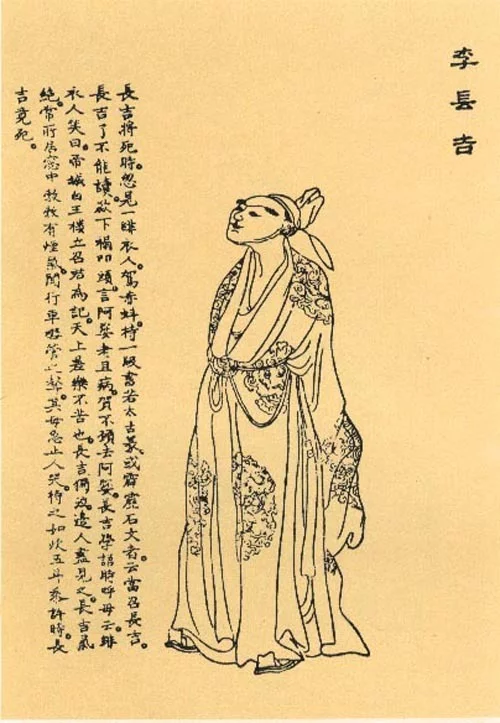 李長吉
長吉將死時。忽見一緋衣人。駕赤虬。持一版書若太古篆。或霹靂石文者。云當召長吉。
長吉了不能讀。欻下榻叩頭。言阿㜷老且病。賀不願去。阿㜷。長吉學語時呼母云。緋
衣人笑曰。帝城白玉樓。立召君為記。天上差樂不苦也。長吉獨泣。邊人盡見之。長吉氣
絕。常所居窓中。勃勃有煙氣。聞行車嘒管之聲。其母急止人哭。待之如炊五斗黍許時。長
吉竟死。